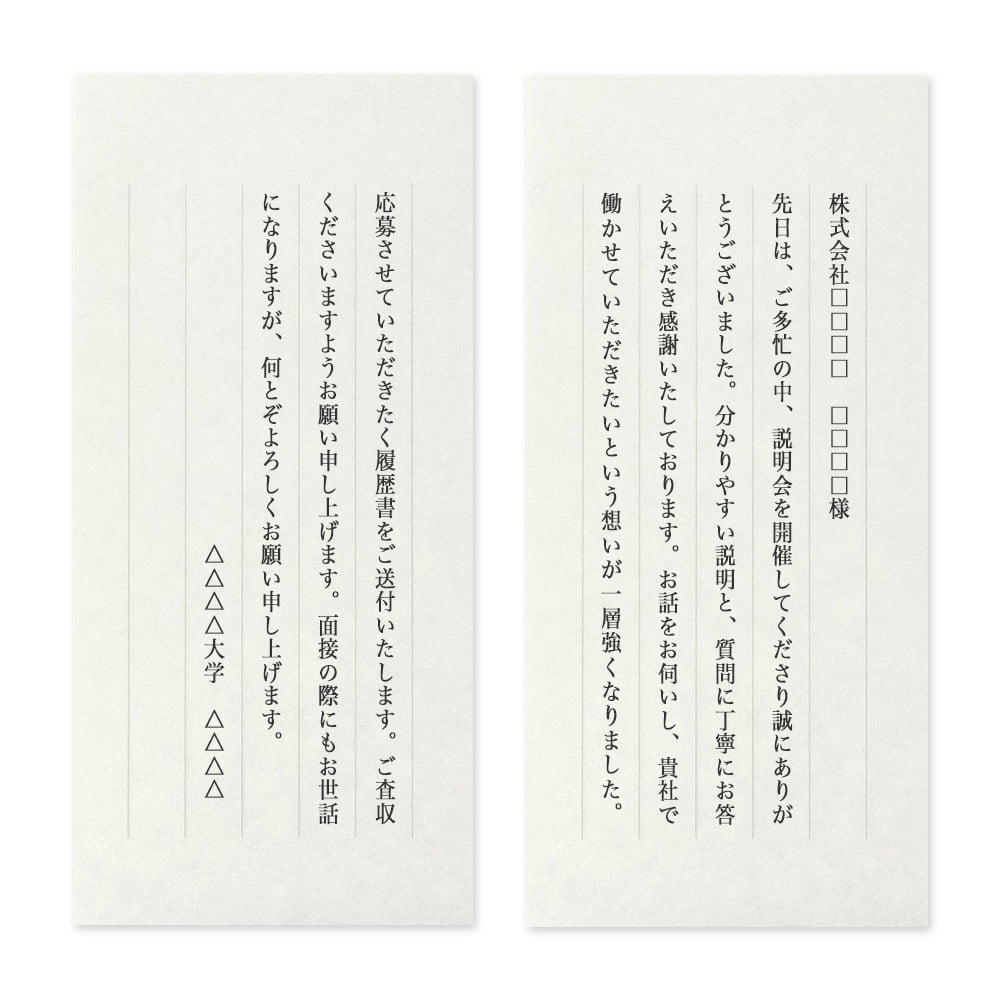 株式会社□□□□　□□□□様
先日は、ご多忙の中、説明会を開催してくださり誠にありが
とうございました。分かりやすい説明と、質問に丁寧にお答
えいただき感謝いたしております。お話をお伺いし、貴社で
働かせていただきたいという想いが一層強くなりました。
応募させていただきたく履歴書をご送付いたします。ご査収
くださいますようお願い申し上げます。面接の際にもお世話
になりますが、何とぞよろしくお願い申し上げます。
△△△△大学　△△△△